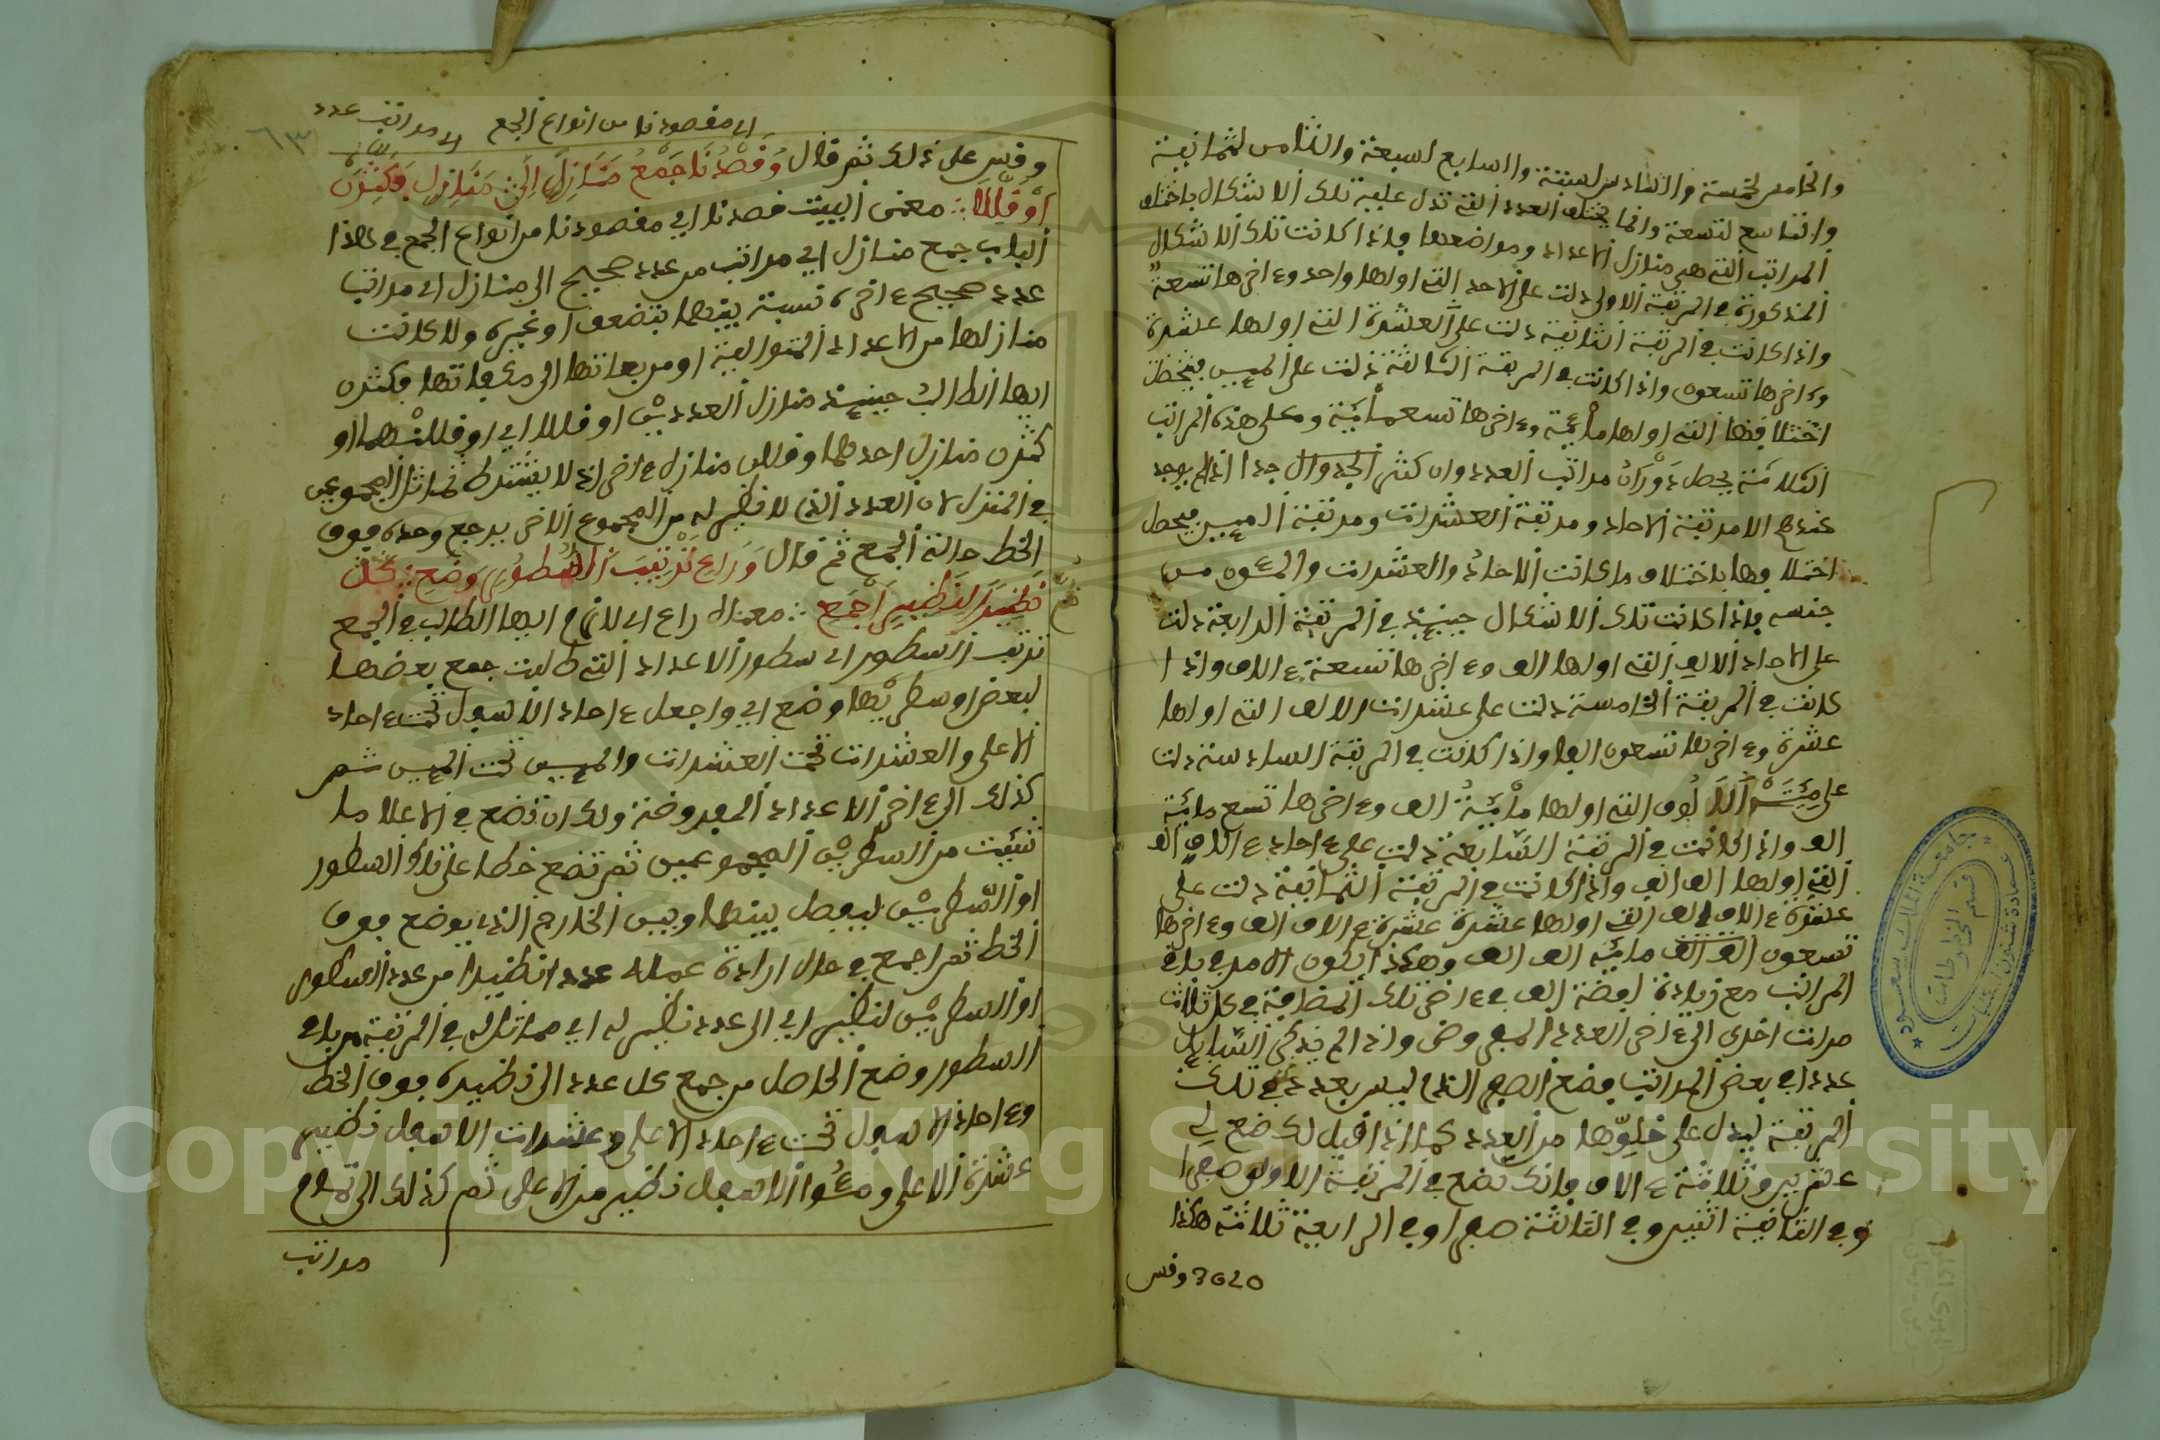 والخامس لخمسة والسادس لستة والسابع لسبعة والثامن لثمانية
والتاسع لتسعة وانما يختلف العدد الذي تدل عليه تلك الاشكال باختلاف
المراتب التي هي منازل الاعداد ومواضعها فاذا كانت تلك الاشكال
المذكورة في المرتبة الاولى دلت على الاحاد التي اولها واحد وءاخرها تسعة
واذا كانت في المرتبة الثانية دلت على العشرة التي اولها عشرة
وءاخرها تسعون واذا كانت في المرتبة الثالثة دلت على الميين
التي اولها مائة وءاخرها تسعمائة وعلى هذه المراتب
الثلاثة يحصل دوران مراتب العدد وان كثر الجدوال جدا اذ لم يوجد
عندهم الا مرتبة الاحاد ومرتبة العشرات ومرتبة الميين فيحصل
اختلافها باختلاف ما كانت الاحاد والعشرات والمئون من
جنسه فاذا كانت تلك الاشكال حينئذ في المرتبة الرابعة دلت
على الاحاد الالاف التي اولها الف وءاخرها تسعة ءالاف واذا
كانت في المرتبة الخامسة دلت على عشرات الالاف التي اولها
عشرة وءاخرها تسعون الفا واذا كانت في المرتبة السادسة دلت
على الالوف التي اولها مائة الف وءاخرها تسع مائة
الف واذا كانت في المرتبة السابعة دلت على ءاحاد ءالاف الف
التي اولها الف الف واذا كانت في المرتبة الثمانية دلت على
عشرة ءالاف الف التي اولها عشرة عشرة ءالاف الف وءاخرها
تسعون الف الف مائة الف الف وهكذا يكون الامر في باقي
المراتب مع زيادة لفظة الف في ءاخر تلك المضافة في كل ثلاث
مرات اخرى الى ءاخر العدد المفروض واذا لم يذكر السايل
عددا في بعض المراتب فضع الصفر الذي ليس بعدد في تلك
المرتبة ليدل على خلوها من العدد كما اذا قيل لك ضع لي
عشرين وثلاثة ءالاف فانك تضع في المرتبة الاولى صفرا
وفي الثانية اثنين وفي الثالثة صفرا وفي الرابعة ثلاثة هكذا
3020 وقس
اي مقصودنا من انواع الجمع الى مراتب عدد
٦٣
وقس على ذلك ثم قال وَقَصْدُنَا جَمْعُ مَنَازِلَ إلَى مَنَازِلٍ فَكَثِّرَنْ
أوْ قَلِّلَا معنى البيت قصدنا اي مقصودنا من انواع الجمع في هذا
الباب جمع منازل اي مراتب من عدد صحيح الى منازل اي مراتب
عدد صحيح ءاخر لا نسبة بينهما بتضعف او غيره ولا كانت
منازلها من الاعداد المتوالية او مربعاتها الى مكعباتها فكثرن
ايها الطالب حينئذ منازل العددين او قللا اي او قللنهما او
كثرن منازل احدهما وقللن منازل ءاخر اذ لا يشترط تماثل المجموعين
في المنزل لان العدد الذي لا نظير له من المجموع الاخر يرجع وحده فوق
الخط حالة الجمع ثم قال وَرَاعِ تَرْتِيبَ السُّطُورِ وَضَعِ كُلّ
نَظِيرٍ لِنَظِيرٍ اجْمَعِ معناه راع اي لازم ايها الطالب في الجمع
ترتيب السطور اي سطور الاعداد التي طلبت جمع بعضها
لبعض او سطريها وضع اي واجعل ءاحاد الاسفل تحت ءاحاد
الاعلى والعشرات تحت العشرات والميين تحت الميين ثم
كذلك الى ءاخر الاعداد المفروضة ولك ان تضع في الاعلا ما
شيت من السطرين المجموعين ثم تضع خطا على تلك السطور
او السطرين ليفصل بينها وبين الخارج الذي يوضع فوق
الخط ثم اجمع في حال ارادة عمله عددا نظيرا من عدد السطور
او السطرين لنظير اي الى عدد نظير له اي مماثل له في المرتبة من باقي
السطور وضع الحاصل من جمع كل عدد الى نظيره فوق الخط
وءاحاد الاسفل تحت ءاحاد الاعلى وعشرات الاسفل نظير
عشرة الاعلى ومئوا الاسفل نظير من الاعلى ثم كذلك الى تمام
مراتب
جامعة الملك سعود
قسم المخطوطات
عمادة شئون المكتبات
Copyright © King Saud University